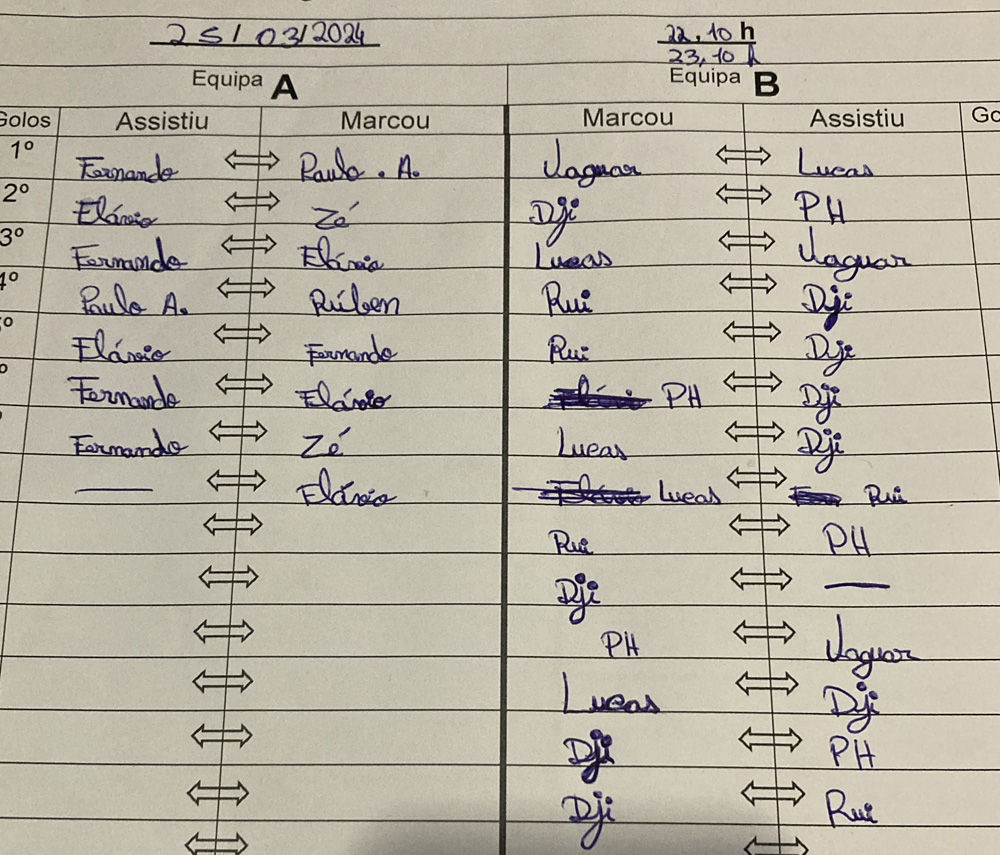 25/03/2024 22,10 h
23,10 h
Equipa A Equipa B
Golos Assistiu Marcou Marcou Assistiu Go
1º Fernando Paulo . A. Vaguar Lucas
2º Flávio Zé Dji PH
3º Fernando Flávio Lucas Vaguar
4º Paulo A. Rúben Rui Dji
º Flávio Fernando Rui Dji
º Fernando Flávio PH Dji
Fernando Zé Lucas Dji
— Flávio Lucas Rui
Rui PH
Dji —
PH Vaguar
Lucas Dji
Dji PH
Dji Rui